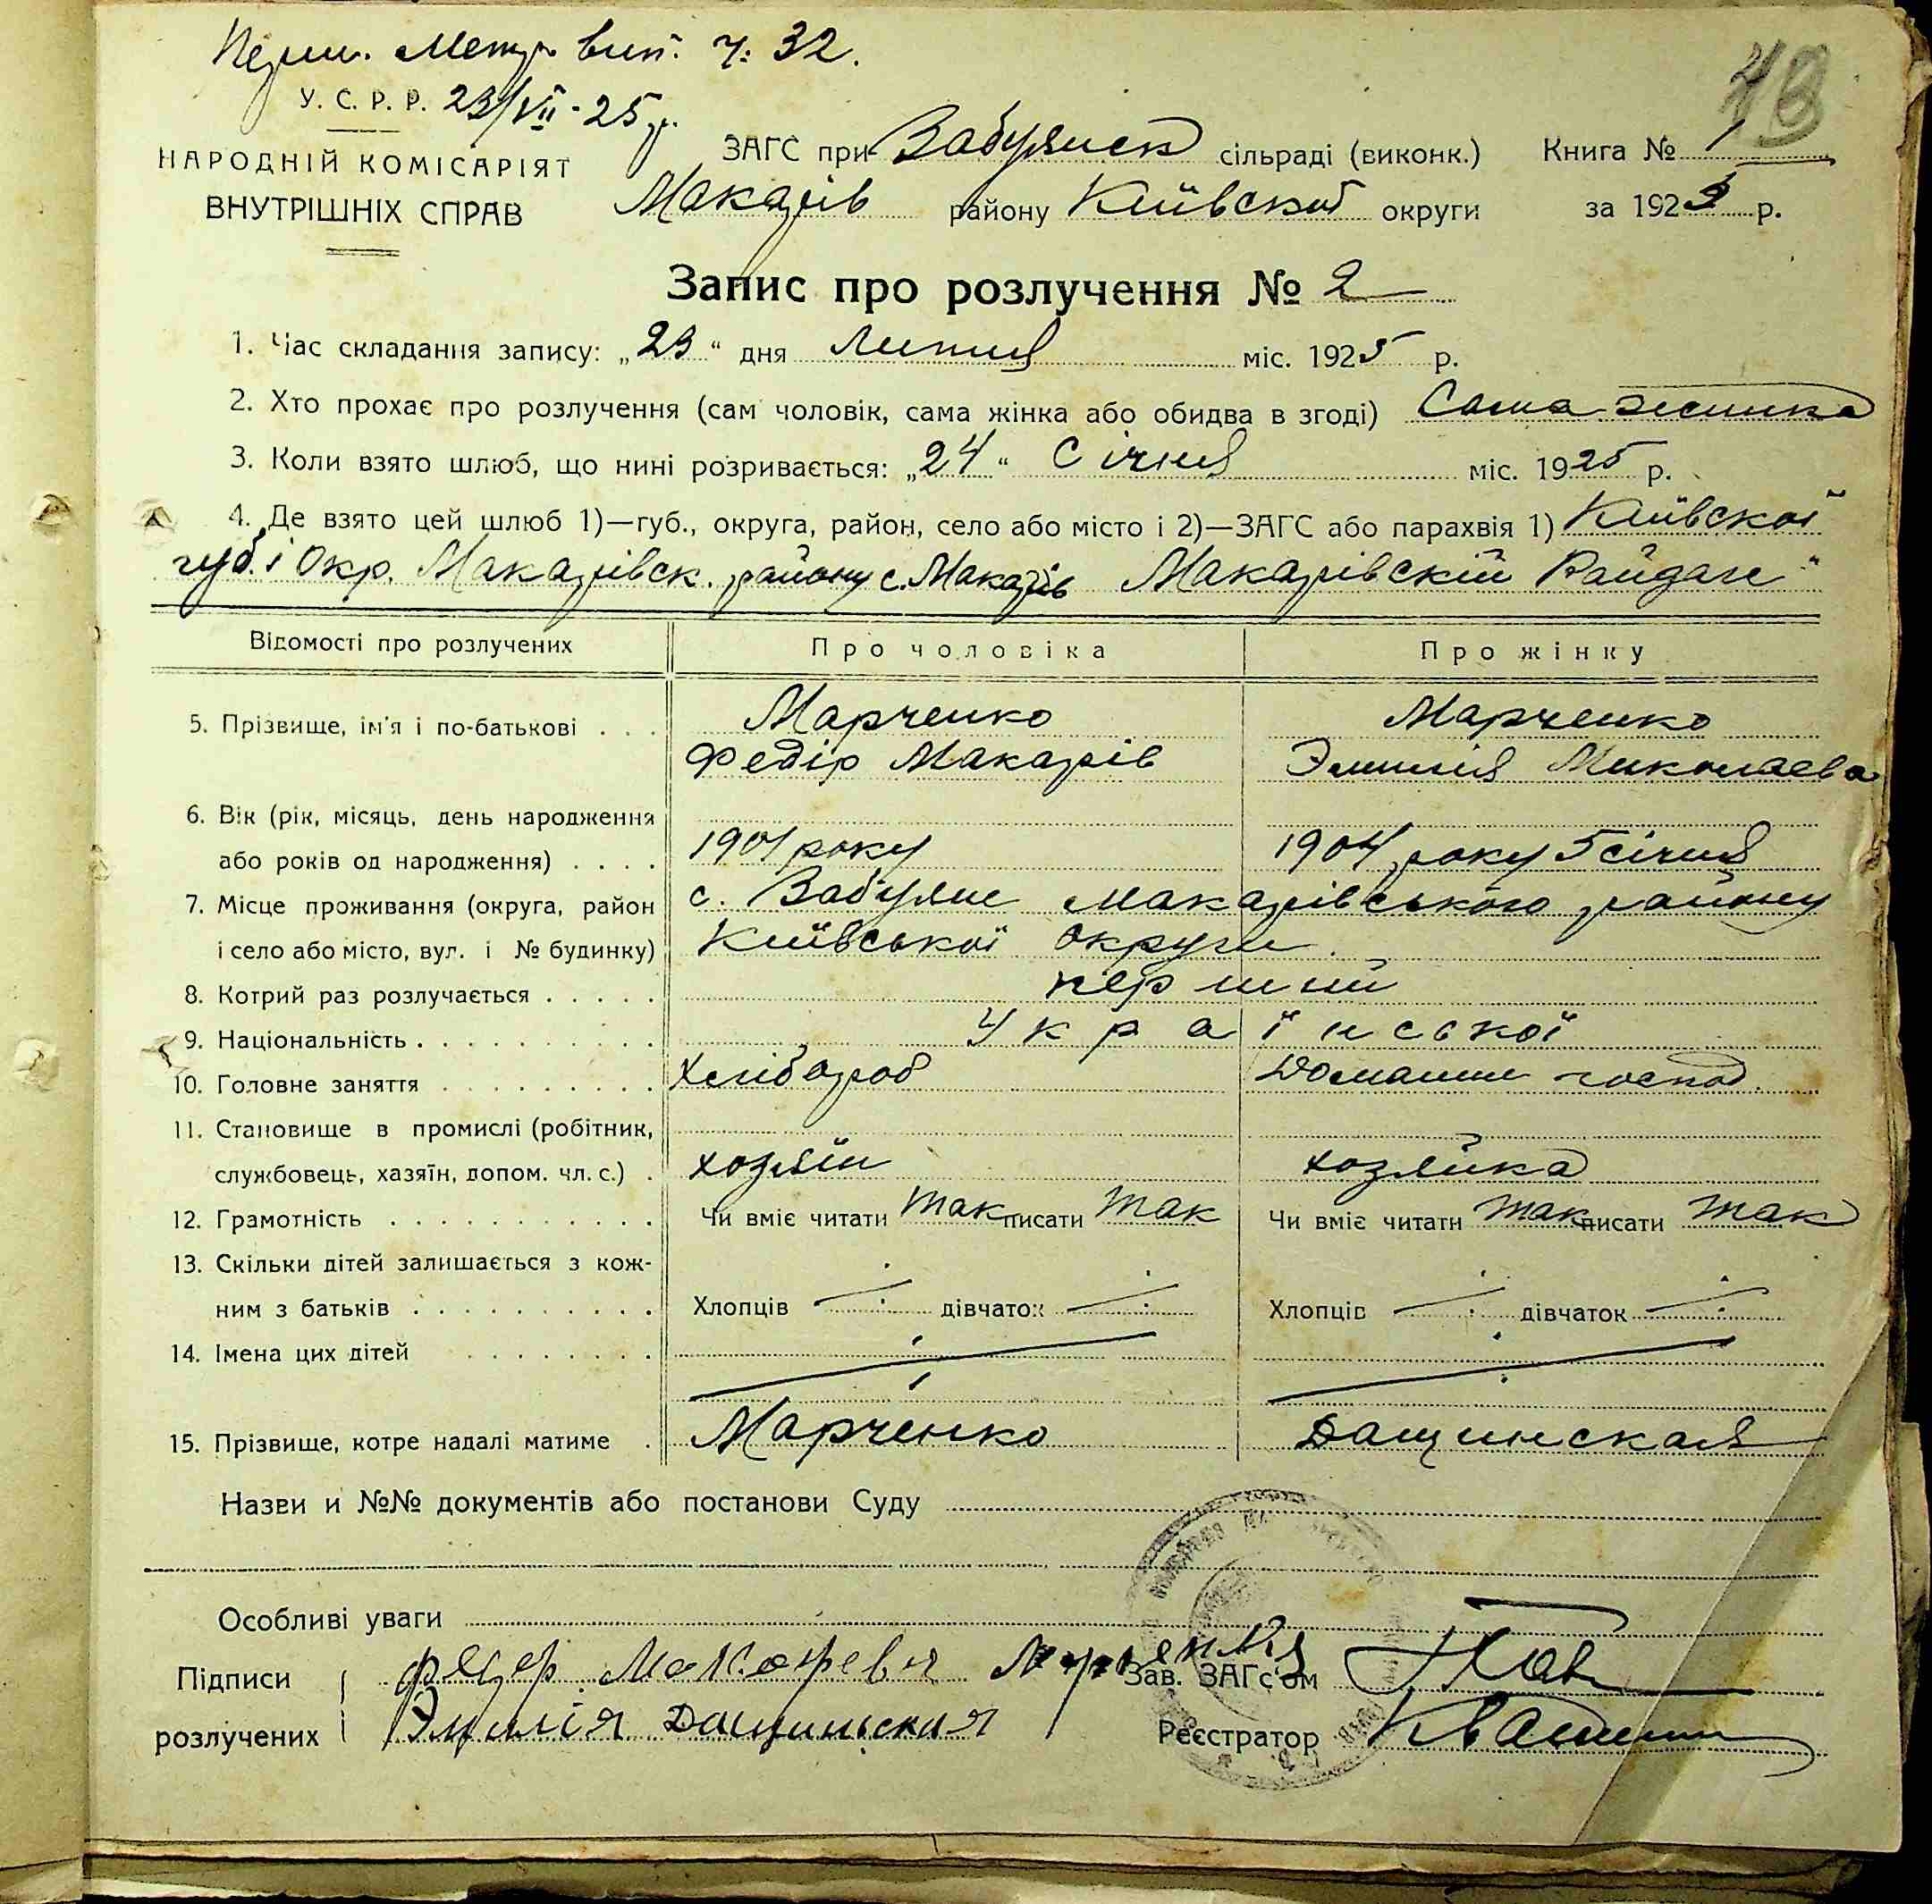 Перш. Метр. вип. ч: 32.
У. С. Р. Р. 23/VII-25 р.
43
НАРОДНІЙ КОМІСАРІЯТ
ВНУТРІШНІХ СПРАВ
ЗАГС при Забуянск сільраді (виконк.) Книга № 1
Макарів району Київскої округи за 1925 р.
Запис про розлучення № 2
1. Час складання запису: „23“ дня Липня міс. 1925 р.
2. Хто прохає про розлучення (сам чоловік, сама жінка або обидва в згоді) Сама жінка
3. Коли взято шлюб, що нині розривається: „24“ Січня міс. 1925 р.
4. Де взято цей шлюб 1)—губ., округа, район, село або місто і 2)—ЗАГС або парахвія 1) Київскої
губ. і Окр. Макарівск. району с. Макарів Макарівскій Райзаг
Відомості про розлучених Про чоловіка Про жінку
5. Прізвище, ім'я і по-батькові . . . Марченко Марченко
Федір Макарів Эмилія Миколаєва
6. Вік (рік, місяць, день народження
або років од народження) . . . . 1901 року 1904 року 5 січня
7. Місце проживання (округа, район с. Забуяне Макарівського району
і село або місто, вул. і № будинку) Київської округи
8. Котрий раз розлучається . . . . . перший
9. Національність . . . . . . . . . . Української
10. Головне заняття . . . . . . . . . Хлібороб Домашне господ.
11. Становище в промислі (робітник,
службовець, хазяїн, допом. чл. с.) . хозяїн хозяйка
12. Грамотність . . . . . . . . . . . Чи вміє читати так писати так Чи вміє читати так писати так
13. Скільки дітей залишається з кож-
ним з батьків . . . . . . . . . . Хлопців дівчаток Хлопців дівчаток
14. Імена цих дітей . . . . . . . .
15. Прізвище, котре надалі матиме . Марченко Дащинская
Назви и №№ документів або постанови Суду
Особливі уваги
Підписи Федер Макаревич Марченко Зав. ЗАГс'ом
розлучених Эмилія Дащинская Реєстратор